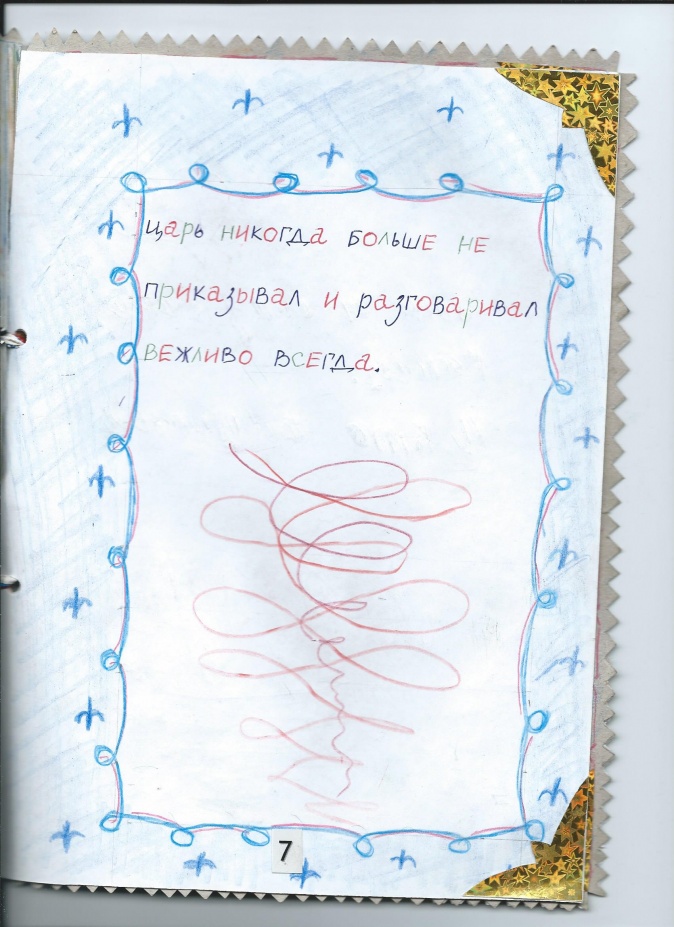 царь никогда больше не
приказывал и разговаривал
вежливо всегда.
7